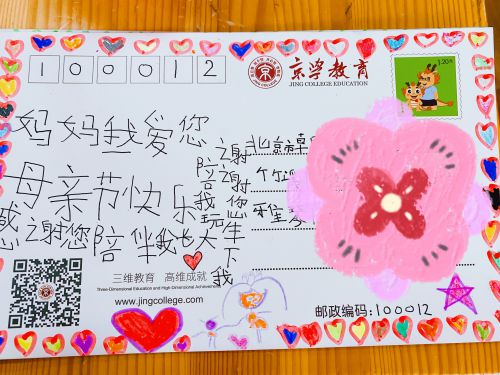 100012
京学教育
JING COLLEGE EDUCATION
1.20元
妈妈我爱您
母亲节快乐
感谢您陪伴我长大
谢谢您生下我
陪我玩
北京市
三维教育 高维成就
Three-Dimensional Education and High-Dimensional Achievements
www.jingcollege.com
邮政编码：100012